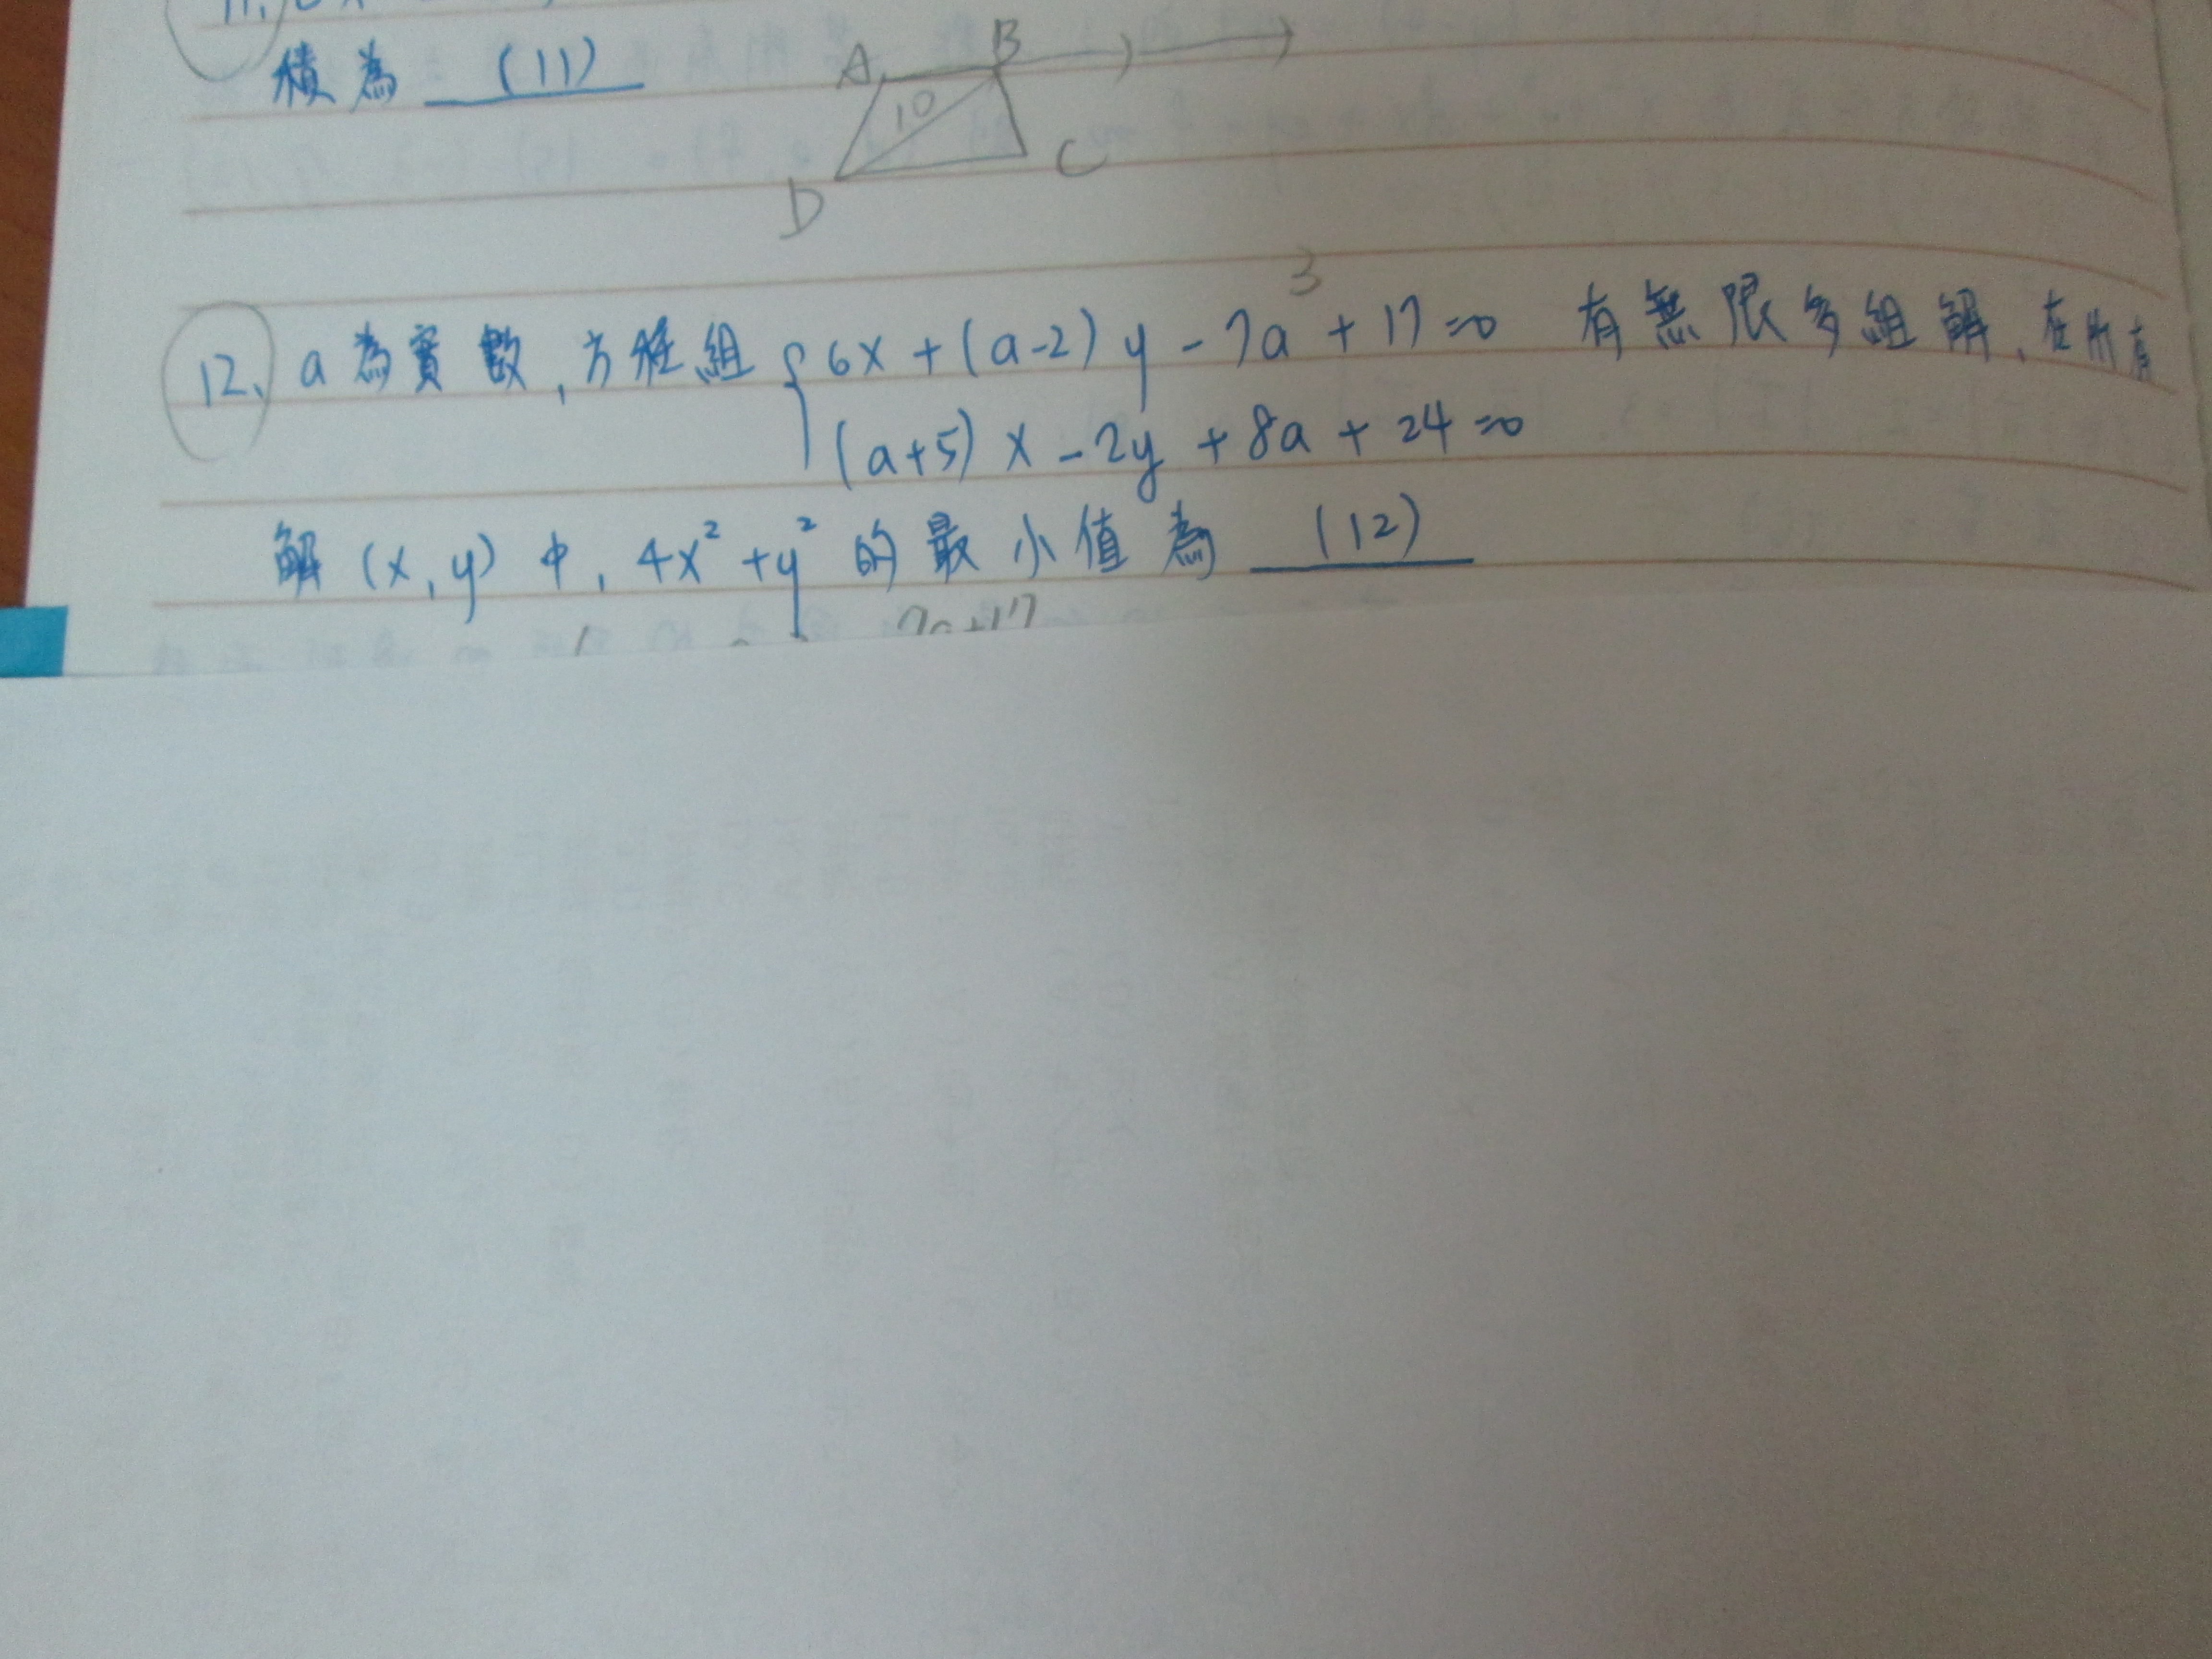 積為 (11)
A B
10
D C
3
12. a為實數,方程組 6x+(a-2)y-7a+17=0 有無限多組解,在所有
(a+5)x-2y+8a+24=0
解(x,y)中,4x²+y²的最小值為 (12)
7a+17